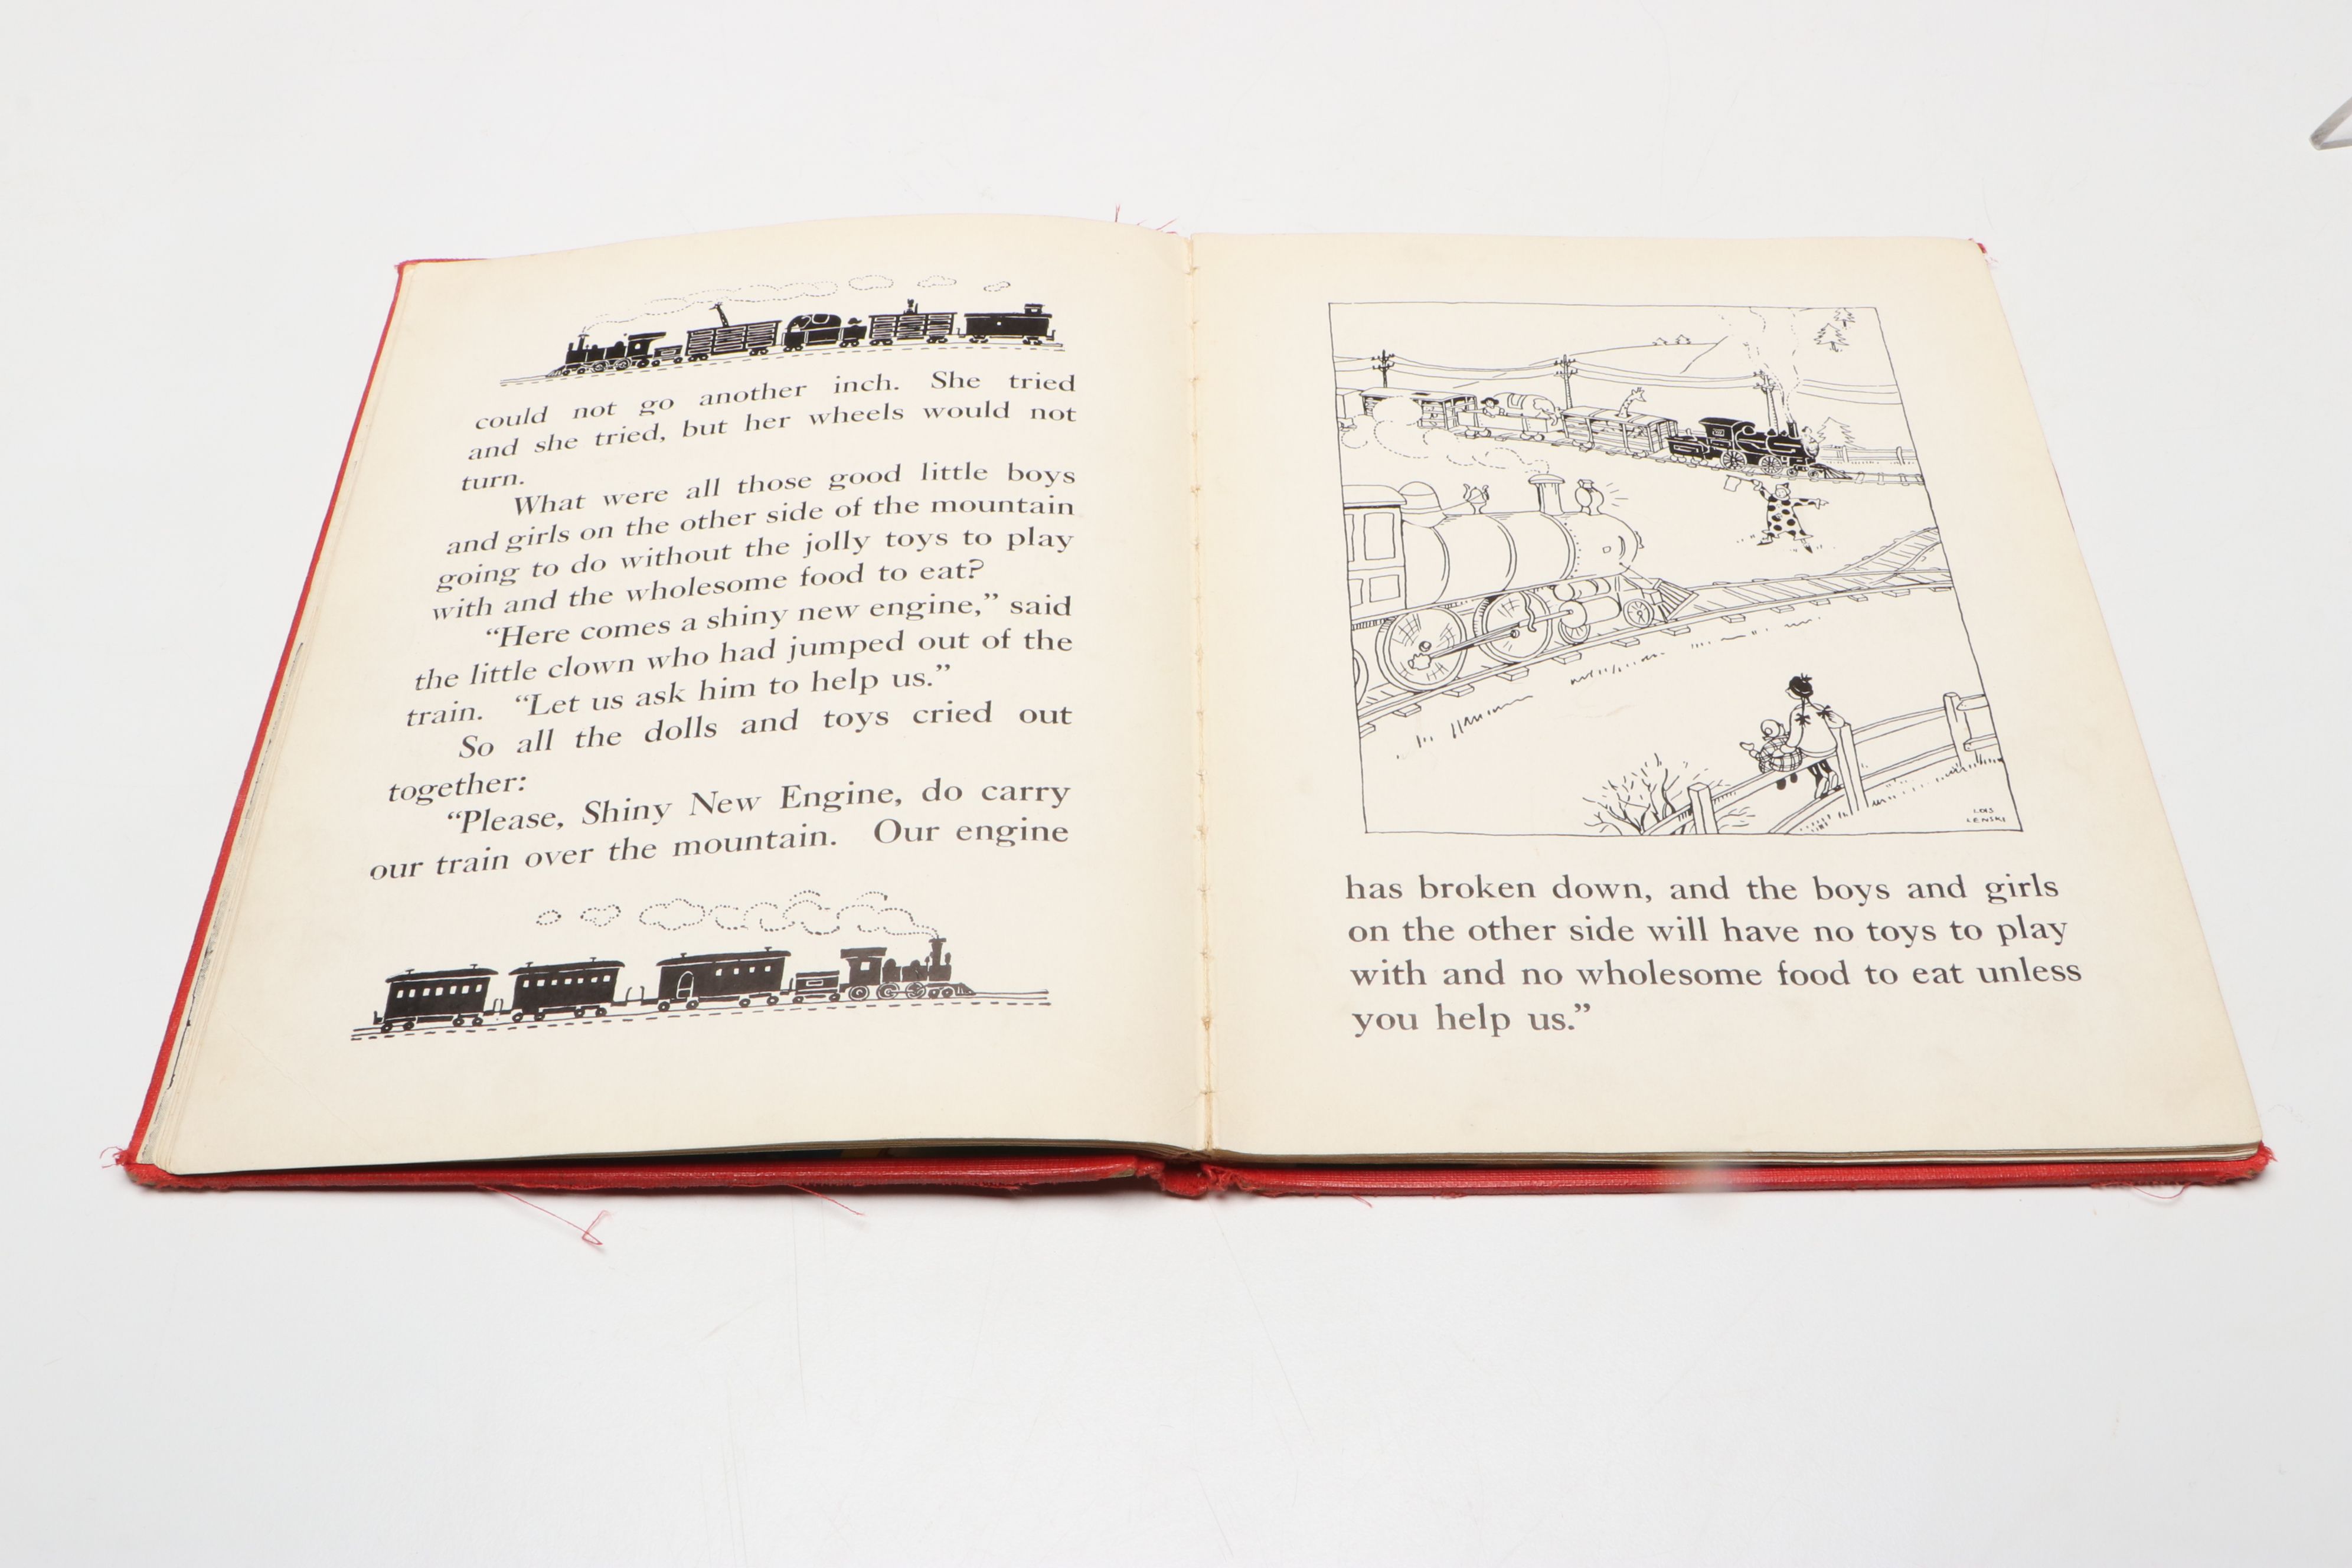 could not go another inch. She tried
and she tried, but her wheels would not
turn.
What were all those good little boys
and girls on the other side of the mountain
going to do without the jolly toys to play
with and the wholesome food to eat?
“Here comes a shiny new engine,” said
the little clown who had jumped out of the
train. “Let us ask him to help us.”
So all the dolls and toys cried out
together:
“Please, Shiny New Engine, do carry
our train over the mountain. Our engine
LOIS
LENSKI
has broken down, and the boys and girls
on the other side will have no toys to play
with and no wholesome food to eat unless
you help us.”